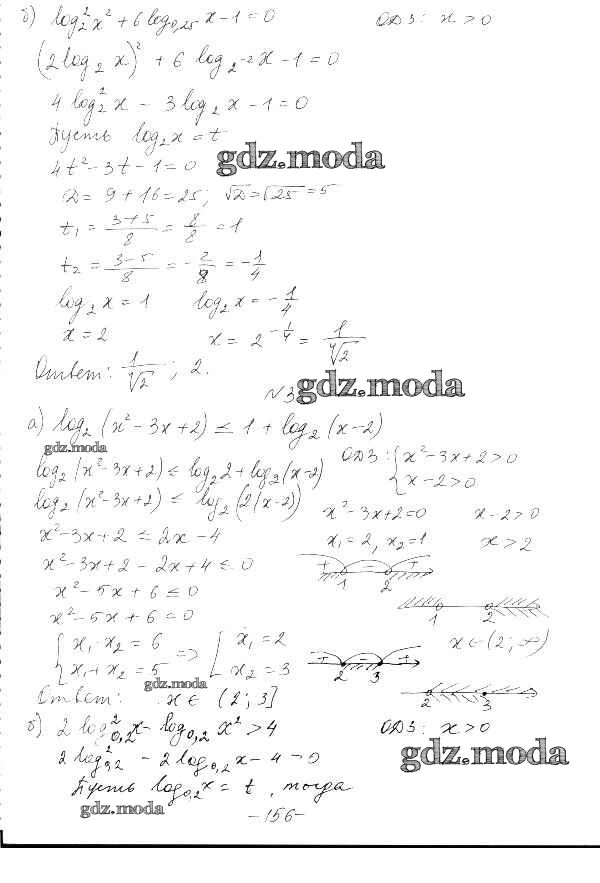 б) log₂²x² + 6log₀,₂₅ x - 1 = 0    ОДЗ: x > 0
(2log₂ x)² + 6 log₂-2 x - 1 = 0
4 log₂² x - 3log₂ x - 1 = 0
Пусть log₂x = t
gdz.moda
4t² - 3t - 1 = 0
D = 9 + 16 = 25; √D = √25 = 5
t₁ = (3+5)/8 = 8/8 = 1
t₂ = (3-5)/8 = -2/8 = -1/4
log₂ x = 1    log₂ x = -1/4
x = 2    x = 2^(-1/4) = 1/⁴√2
Ответ: 1/⁴√2 ; 2.
N3
gdz.moda
а) log₂ (x² - 3x + 2) ≤ 1 + log₂ (x - 2)
gdz.moda
log₂ (x² - 3x + 2) ≤ log₂ 2 + log₂ (x - 2)    ОДЗ: { x² - 3x + 2 > 0
x - 2 > 0
log₂ (x² - 3x + 2) ≤ log₂ (2(x - 2))    x² - 3x + 2 = 0    x - 2 > 0
x² - 3x + 2 ≤ 2x - 4    x₁ = 2, x₂ = 1    x > 2
x² - 3x + 2 - 2x + 4 ≤ 0    + - +
1 2
x² - 5x + 6 ≤ 0
1 2
x² - 5x + 6 = 0
{ x₁ · x₂ = 6 => [ x₁ = 2    x ∈ (2; +∞)
x₁ + x₂ = 5    x₂ = 3    + - +
2 3
gdz.moda
2 3
Ответ: x ∈ (2; 3]
б) 2 log²₀,₂ x - log₀,₂ x² > 4    ОДЗ: x > 0
gdz.moda
2 log²₀,₂ - 2 log₀,₂ x - 4 > 0
Пусть log₀,₂ x = t, тогда
gdz.moda
-156-